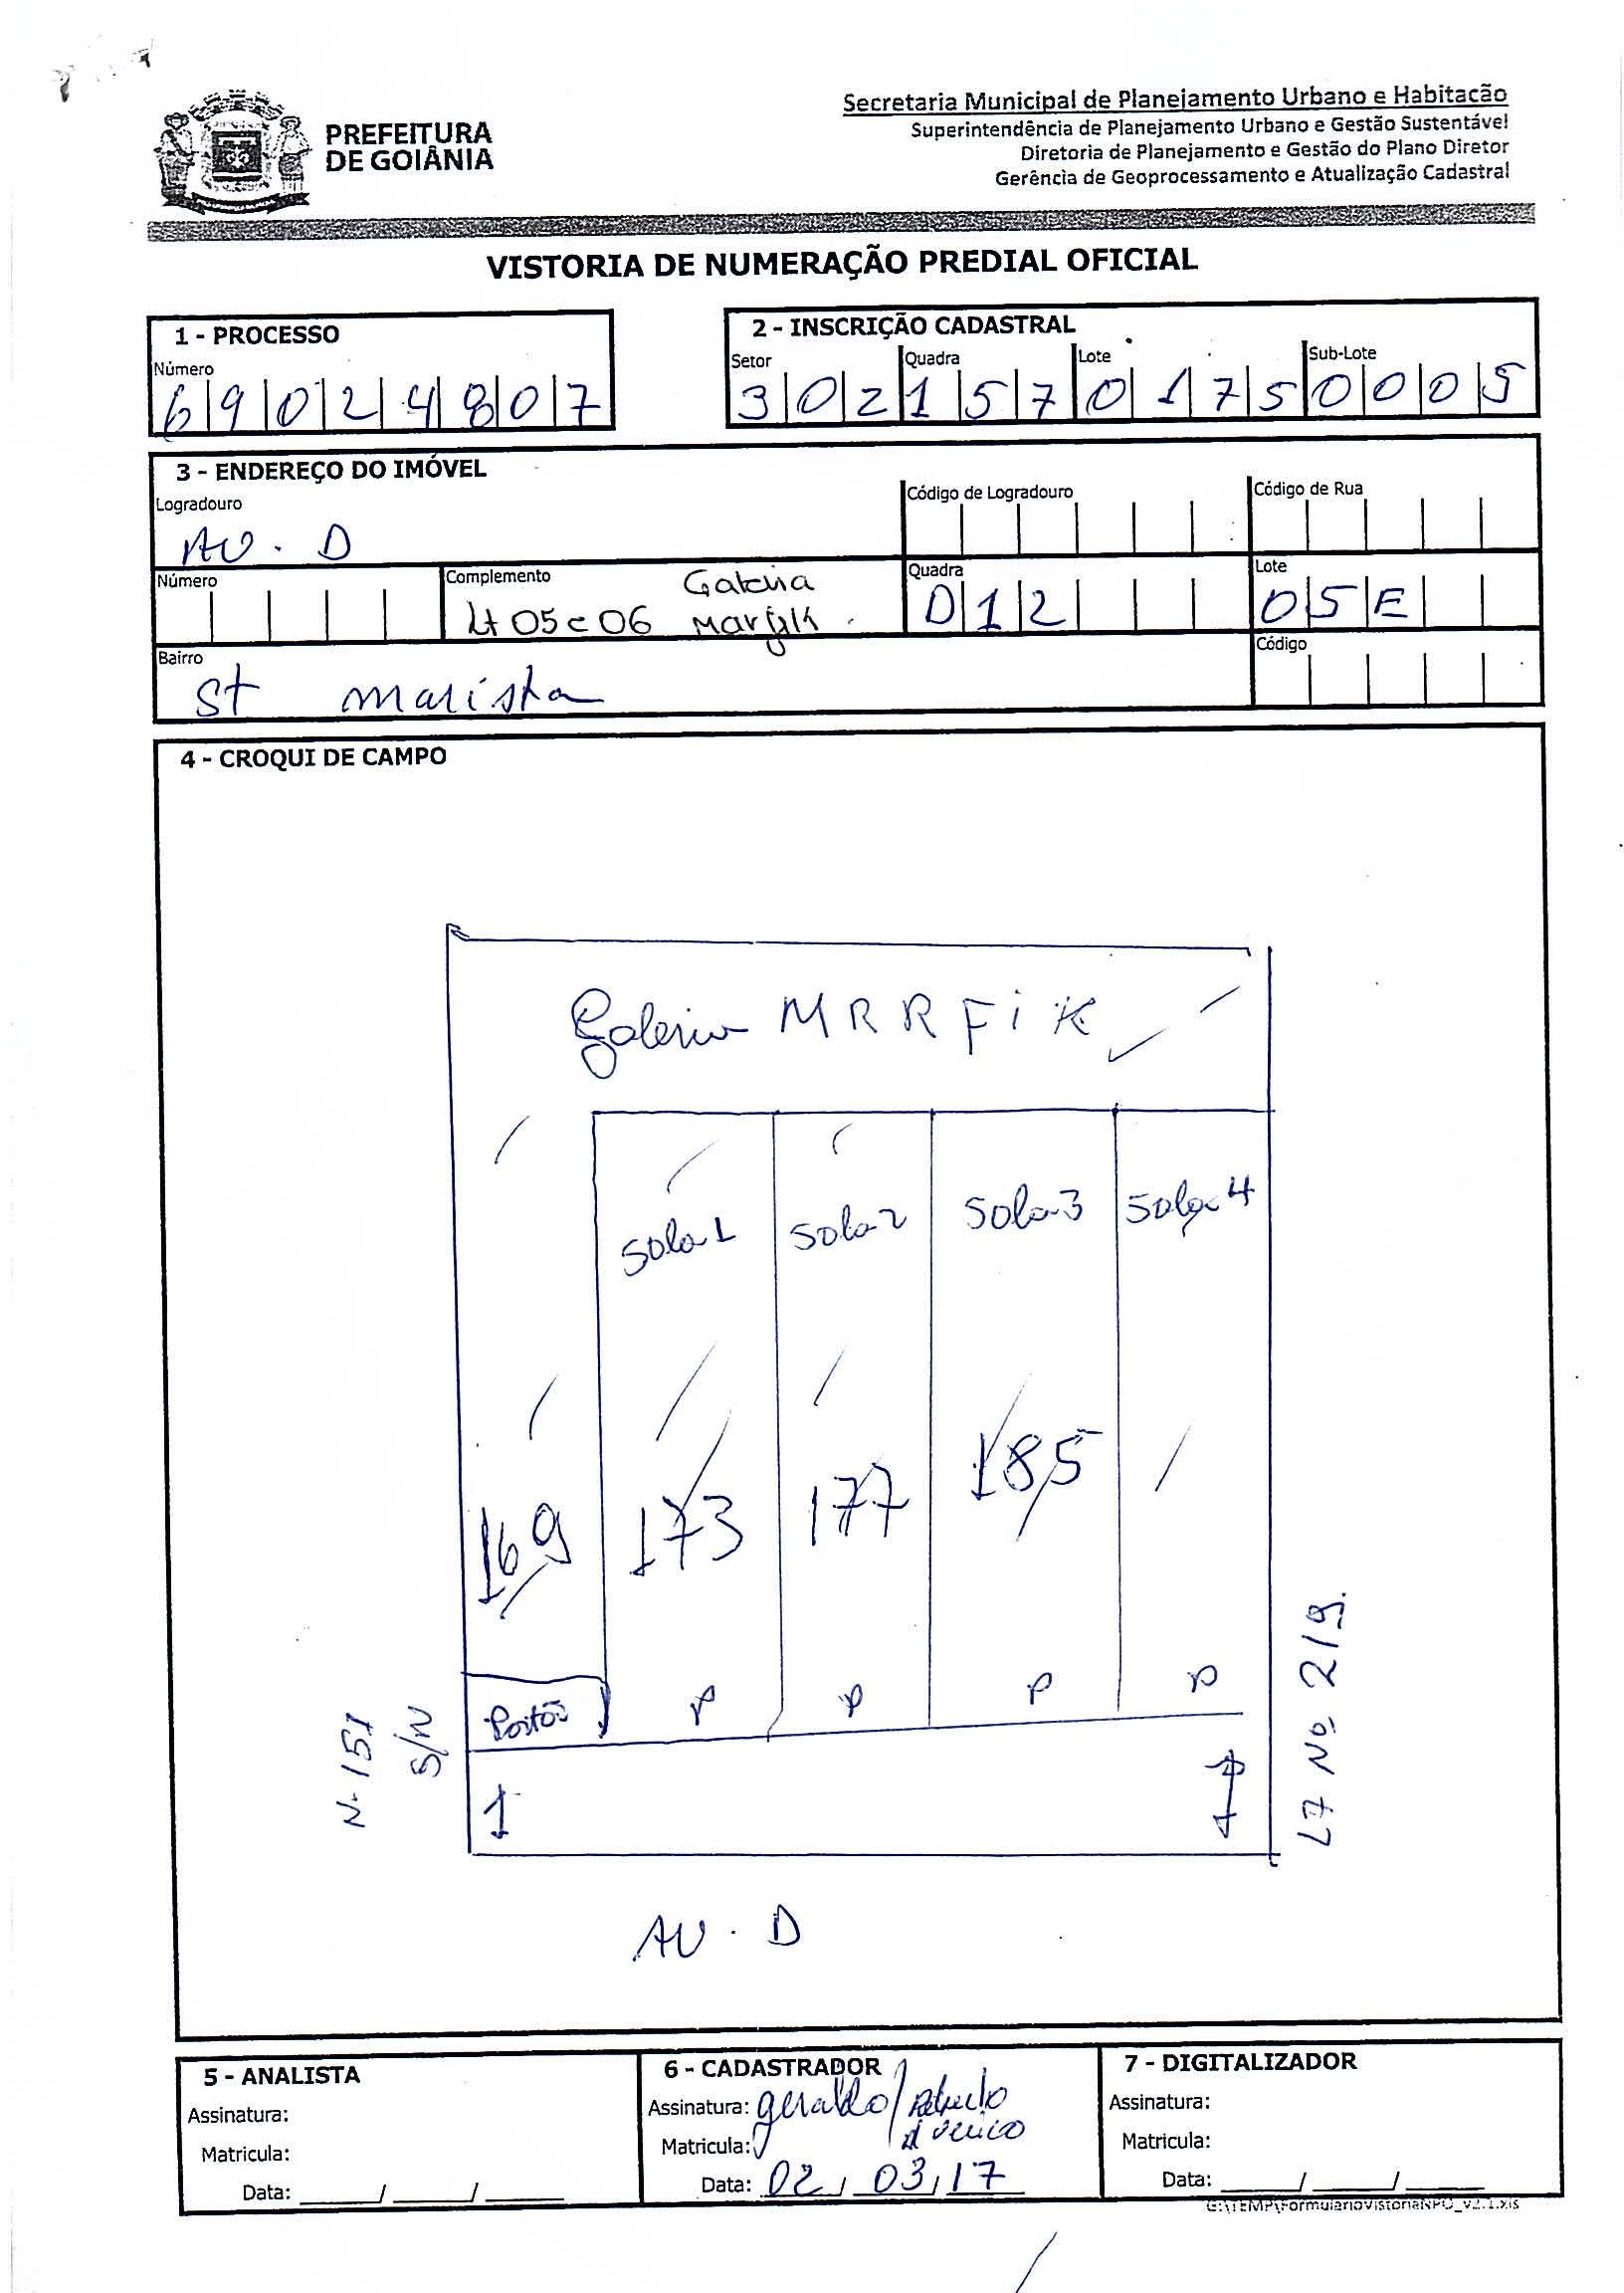 PREFEITURA
DE GOIÂNIA
Secretaria Municipal de Planejamento Urbano e Habitação
Superintendência de Planejamento Urbano e Gestão Sustentável
Diretoria de Planejamento e Gestão do Plano Diretor
Gerência de Geoprocessamento e Atualização Cadastral
VISTORIA DE NUMERAÇÃO PREDIAL OFICIAL
1 - PROCESSO
Número
69024807
2 - INSCRIÇÃO CADASTRAL
Setor Quadra Lote Sub-Lote
302 157 0175 0005
3 - ENDEREÇO DO IMÓVEL
Logradouro Código de Logradouro Código de Rua
AV. D
Número Complemento Quadra Lote
Galeria
Lt 05 e 06 D12 05E
Bairro Código
St Marista
4 - CROQUI DE CAMPO
Galeria MRRFiK
Sala 1 Sala 2 Sala 3 Sala 4
169 173 177 185
Portão P P P P
N. 151
S/N
L7 No. 219.
AV. D
5 - ANALISTA
Assinatura:
Matricula:
Data: ____/____/____
6 - CADASTRADOR
Assinatura: geraldo/
Matricula:
Data: 02/03/17
7 - DIGITALIZADOR
Assinatura:
Matricula:
Data: ____/____/____
G:\TEMP\FormularioVistoriaNPO_v2.1.xls